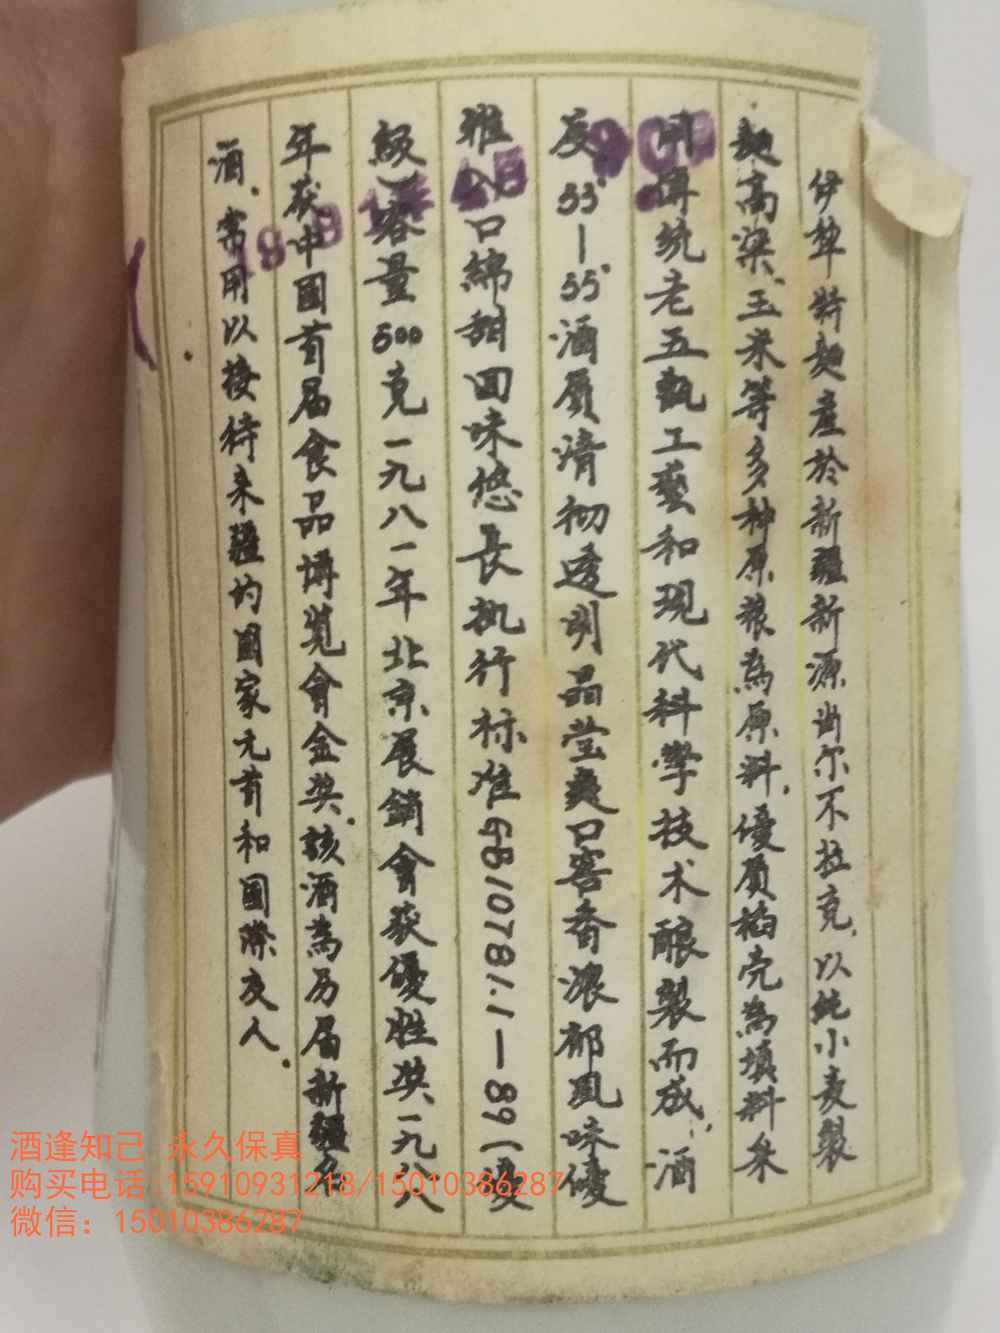 伊犁特麯產於新疆新源肖尔不拉克,以純小麦製
麯高梁、玉米等多种原粮為原料,優质稻壳為填料采
用傳統老五甑工藝和現代科學技术釀製而成,酒
度55°—55°酒质清彻透明晶莹爽口窖香濃郁風味優
雅入口綿甜回味悠長执行标准GB10781.1—89(優
級)容量500克一九八一年北京展銷會获優胜奖一九八八
年获中國首届食品博览會金奖.該酒為历届新疆名
酒.常用以接待来疆的國家元首和國際友人.
酒逢知己 永久保真
购买电话 15910931218/15010386287
微信：15010386287